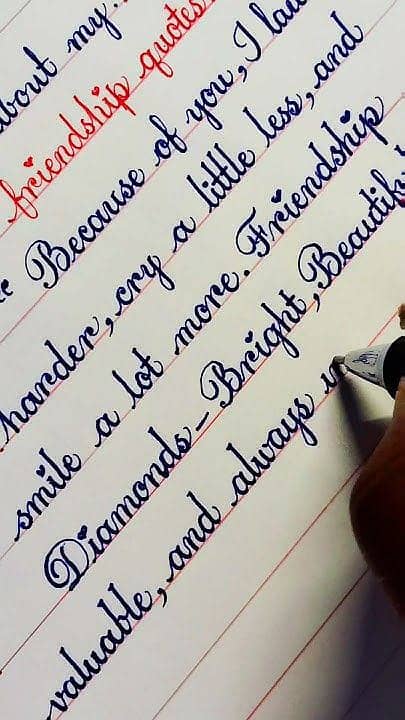 about my..
friendship quotes
" Because of you, I lau
harder, cry a little less, and
smile a lot more. Friendship
Diamonds - Bright, Beautiful
valuable, and always